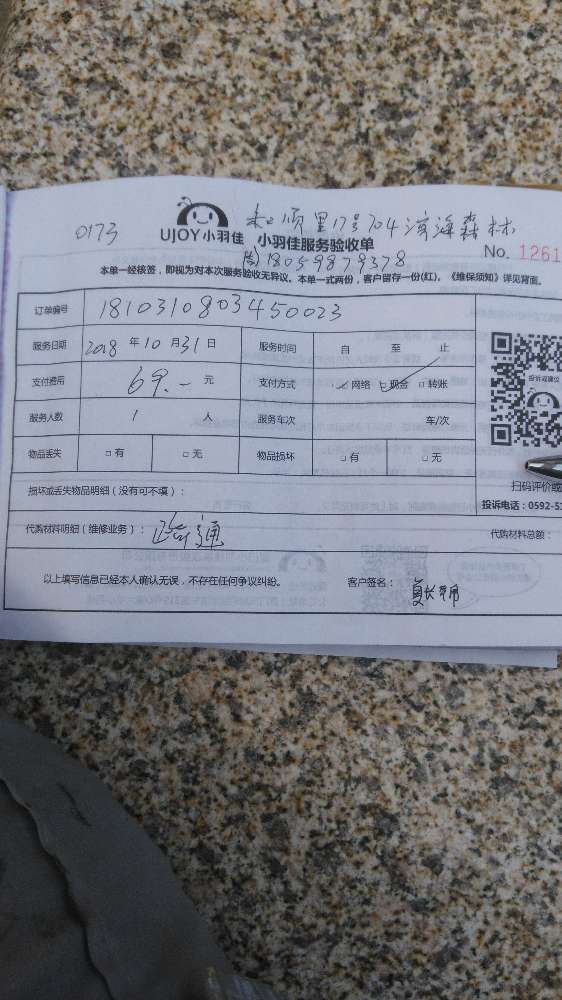 0173 和顺里17号704滨海森林
UJOY小羽佳 小羽佳服务验收单
No. 1261
18059879378
本单一经核签，即视为对本次服务验收无异议。本单一式两份，客户留存一份(红)，《维保须知》详见背面。
订单编号 1810310803450023
服务日期 2018 年 10 月 31 日 服务时间 自 至 止
支付费用 69.- 元 支付方式 网络 现金 转账
服务人数 1 人 服务车次 车/次
投诉或建议
物品丢失 □有 □无 物品损坏 □有 □无
扫码评价或
损坏或丢失物品明细（没有可不填）：
投诉电话：0592-5
代购材料明细（维修业务）： 疏通 代购材料总额：
以上填写信息已经本人确认无误，不存在任何争议纠纷。 客户签名：